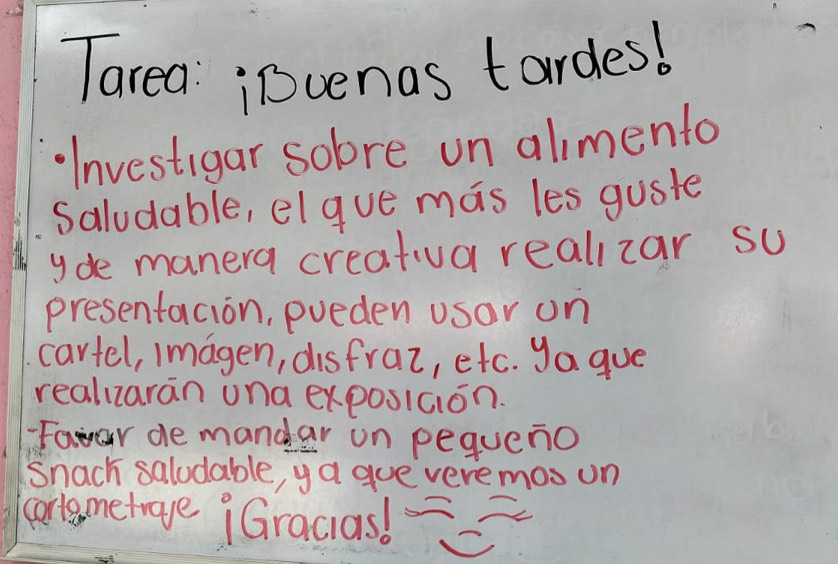 Tarea: ¡Buenas tardes!
•Investigar sobre un alimento
saludable, el que más les guste
y de manera creativa realizar su
presentación, pueden usar un
cartel, imágen, disfraz, etc. Ya que
realizarán una exposición.
-Favor de mandar un pequeño
snack saludable, ya que veremos un
cortometraje ¡Gracias!